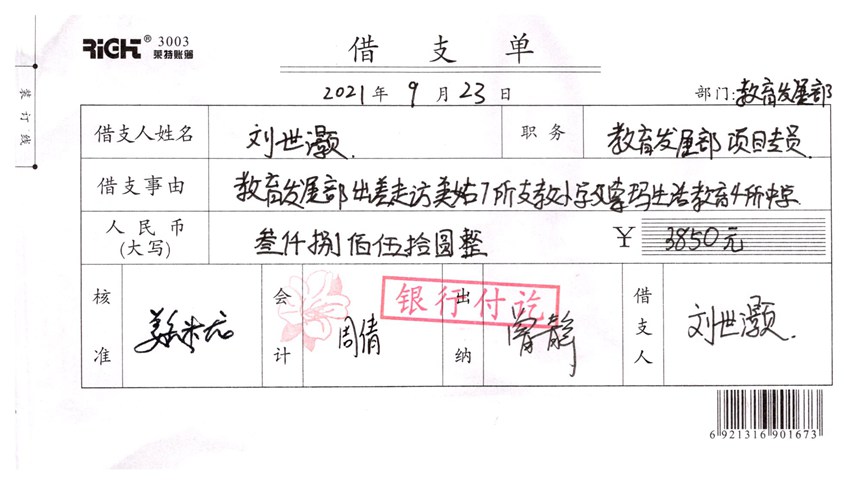 RiCH® 3003
莱特账簿
借支单
2021年 9月23日
部门:教育发展部
装订线
借支人姓名 刘世灏 职务 教育发展部项目专员
借支事由 教育发展部出差走访美姑7所支教小学及索玛生活教育4所中学
人民币(大写) 叁仟捌佰伍拾圆整 ¥ 3850元
核准 会计 周倩 出纳 借支人 刘世灏.
银行付讫
6 921316 901673